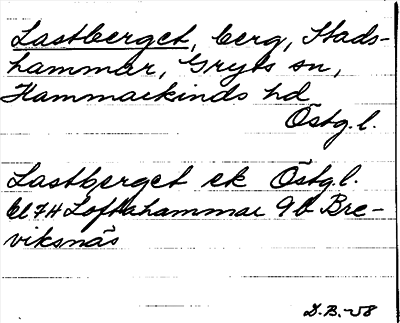 Lastberget, berg, Stads-
hammar, Gryts sn,
Hammarkinds hd
Östg.l.
Lastberget ek Östg.l.
Loftahammar 9b Bre-
viksnäs
D.B.-58